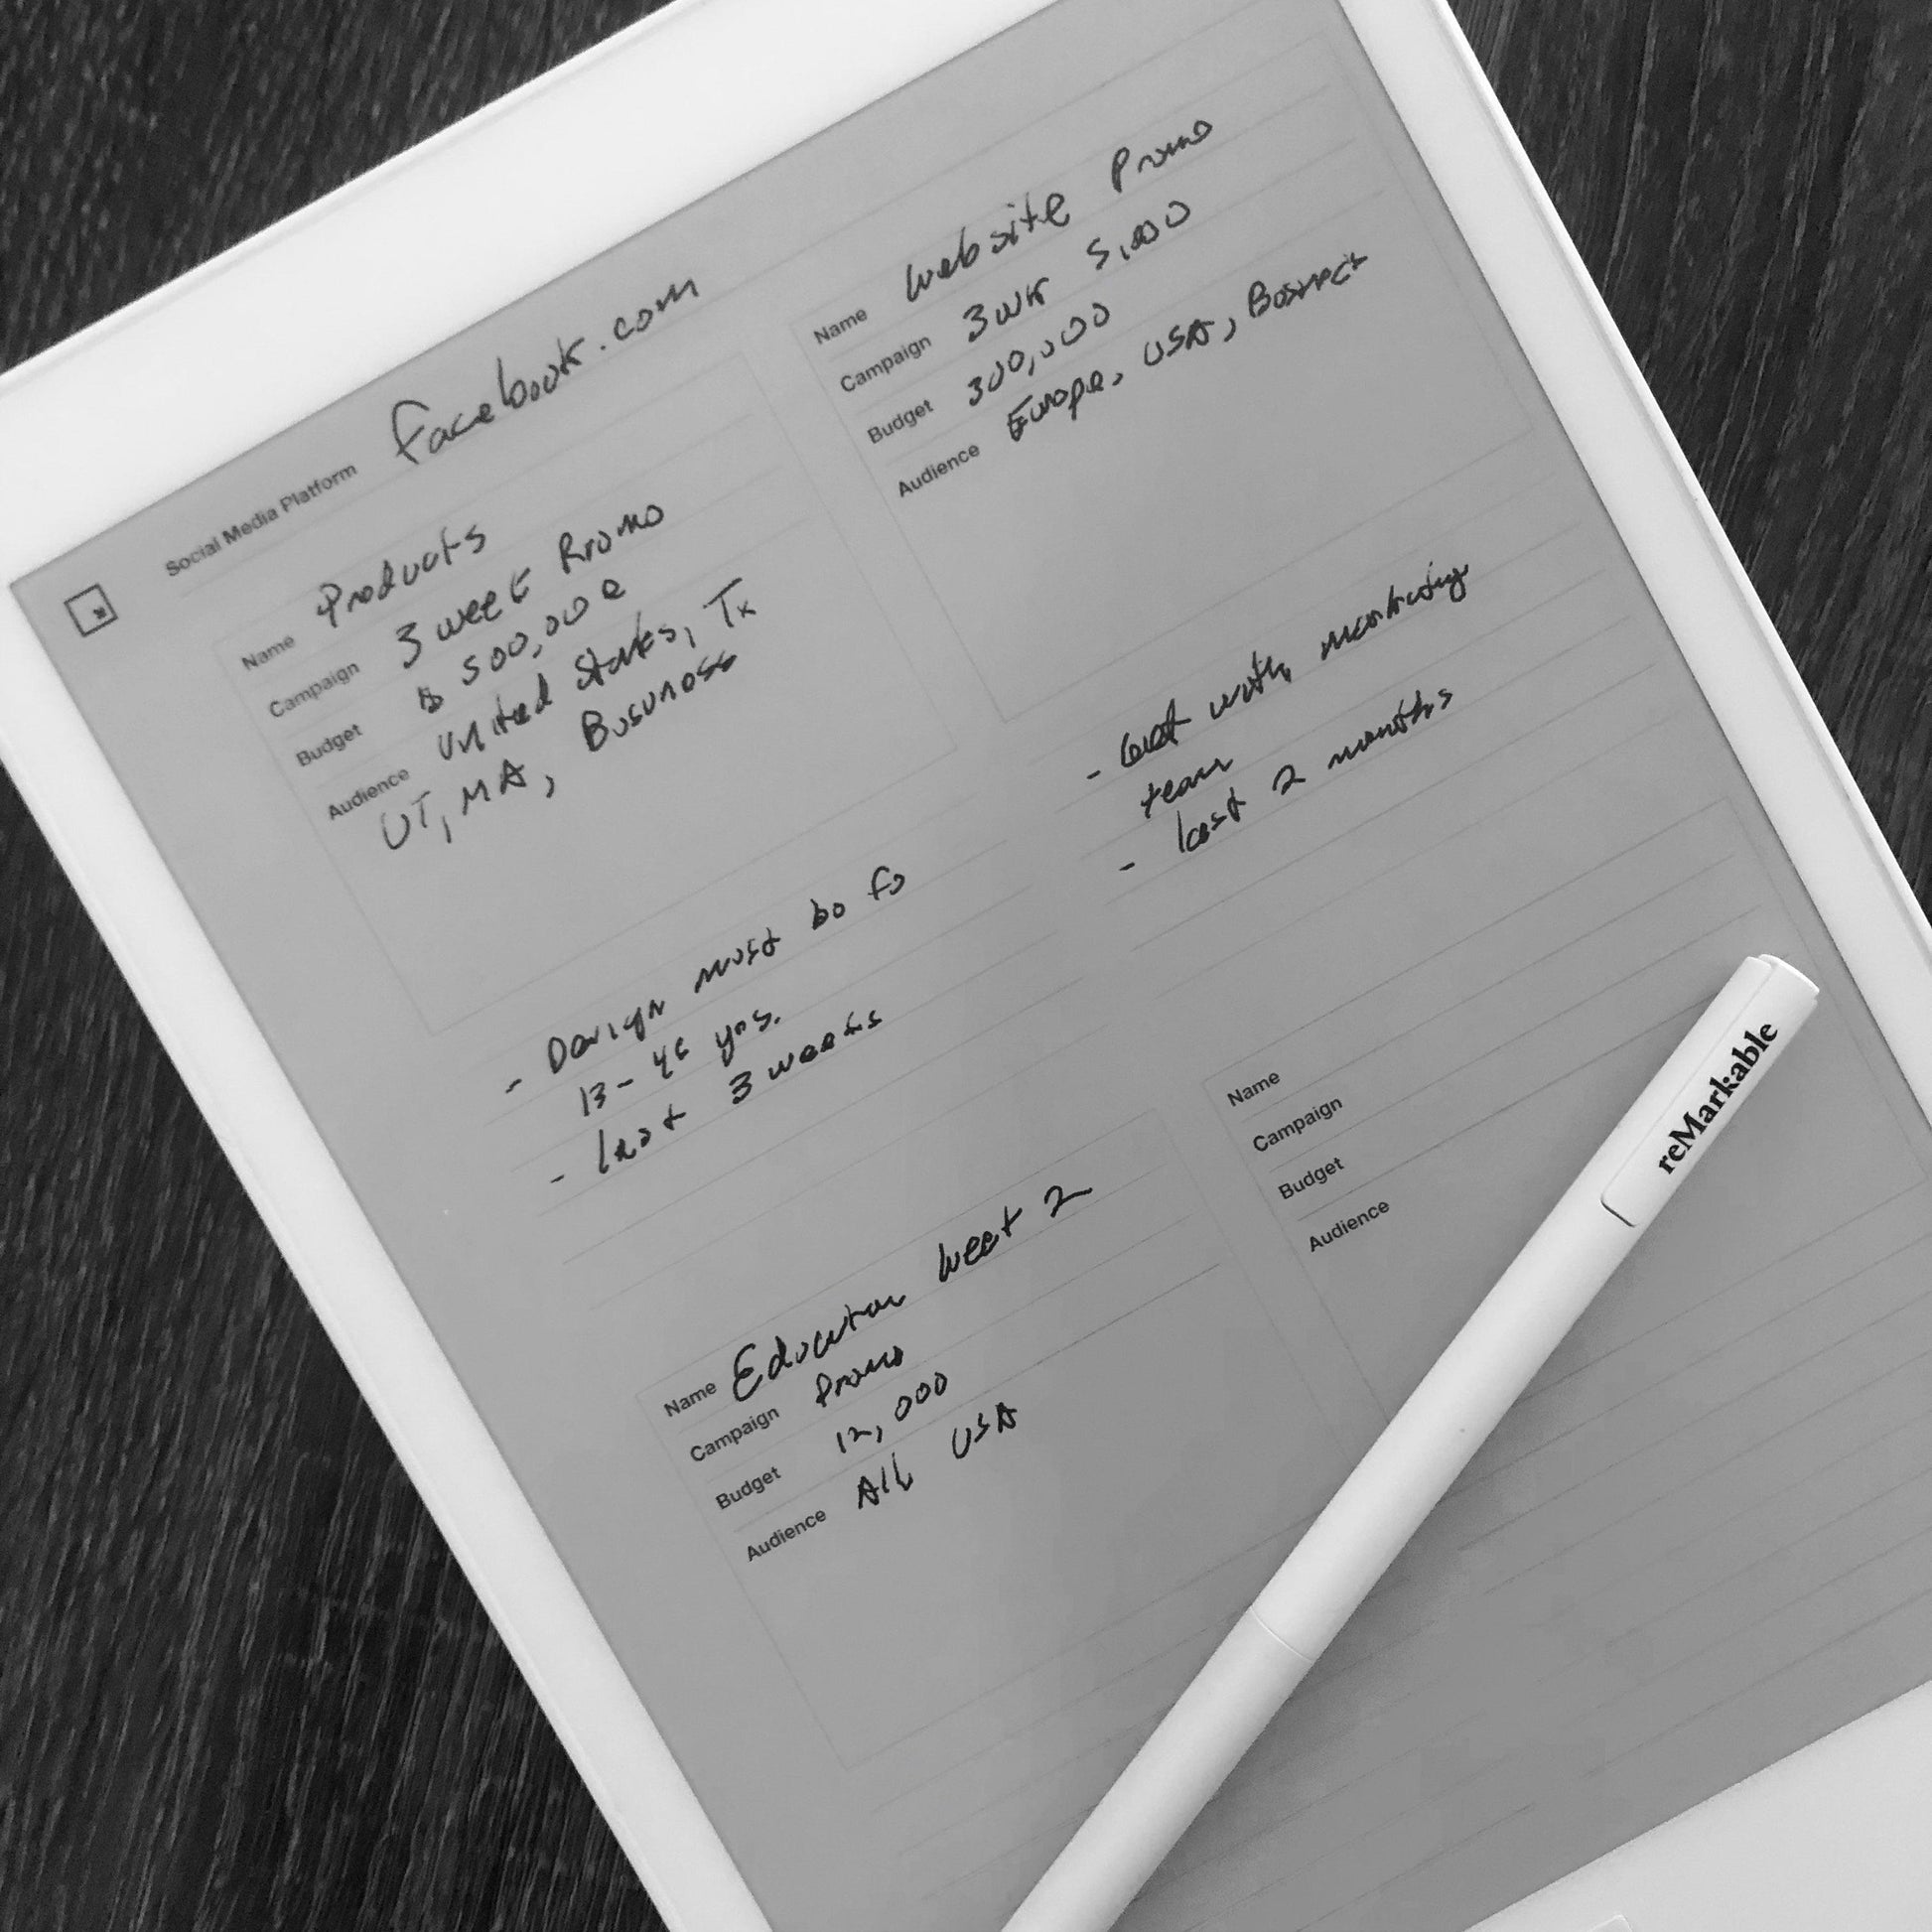 Social Media Platform facebook.com
Name Products
Campaign 3 week Promo
Budget $ 500,000
Audience United States, Tx
UT, MA, Business
- Design must be fo
13-46 yrs.
- last 3 weeks
Name website Promo
Campaign 3wk 5,000
Budget 300,000
Audience Europe, USA,
- with marketing
team
- last 2 months
Name Education week 2
Campaign Promo
Budget 12,000
Audience All USA
Name
Campaign
Budget
Audience
reMarkable